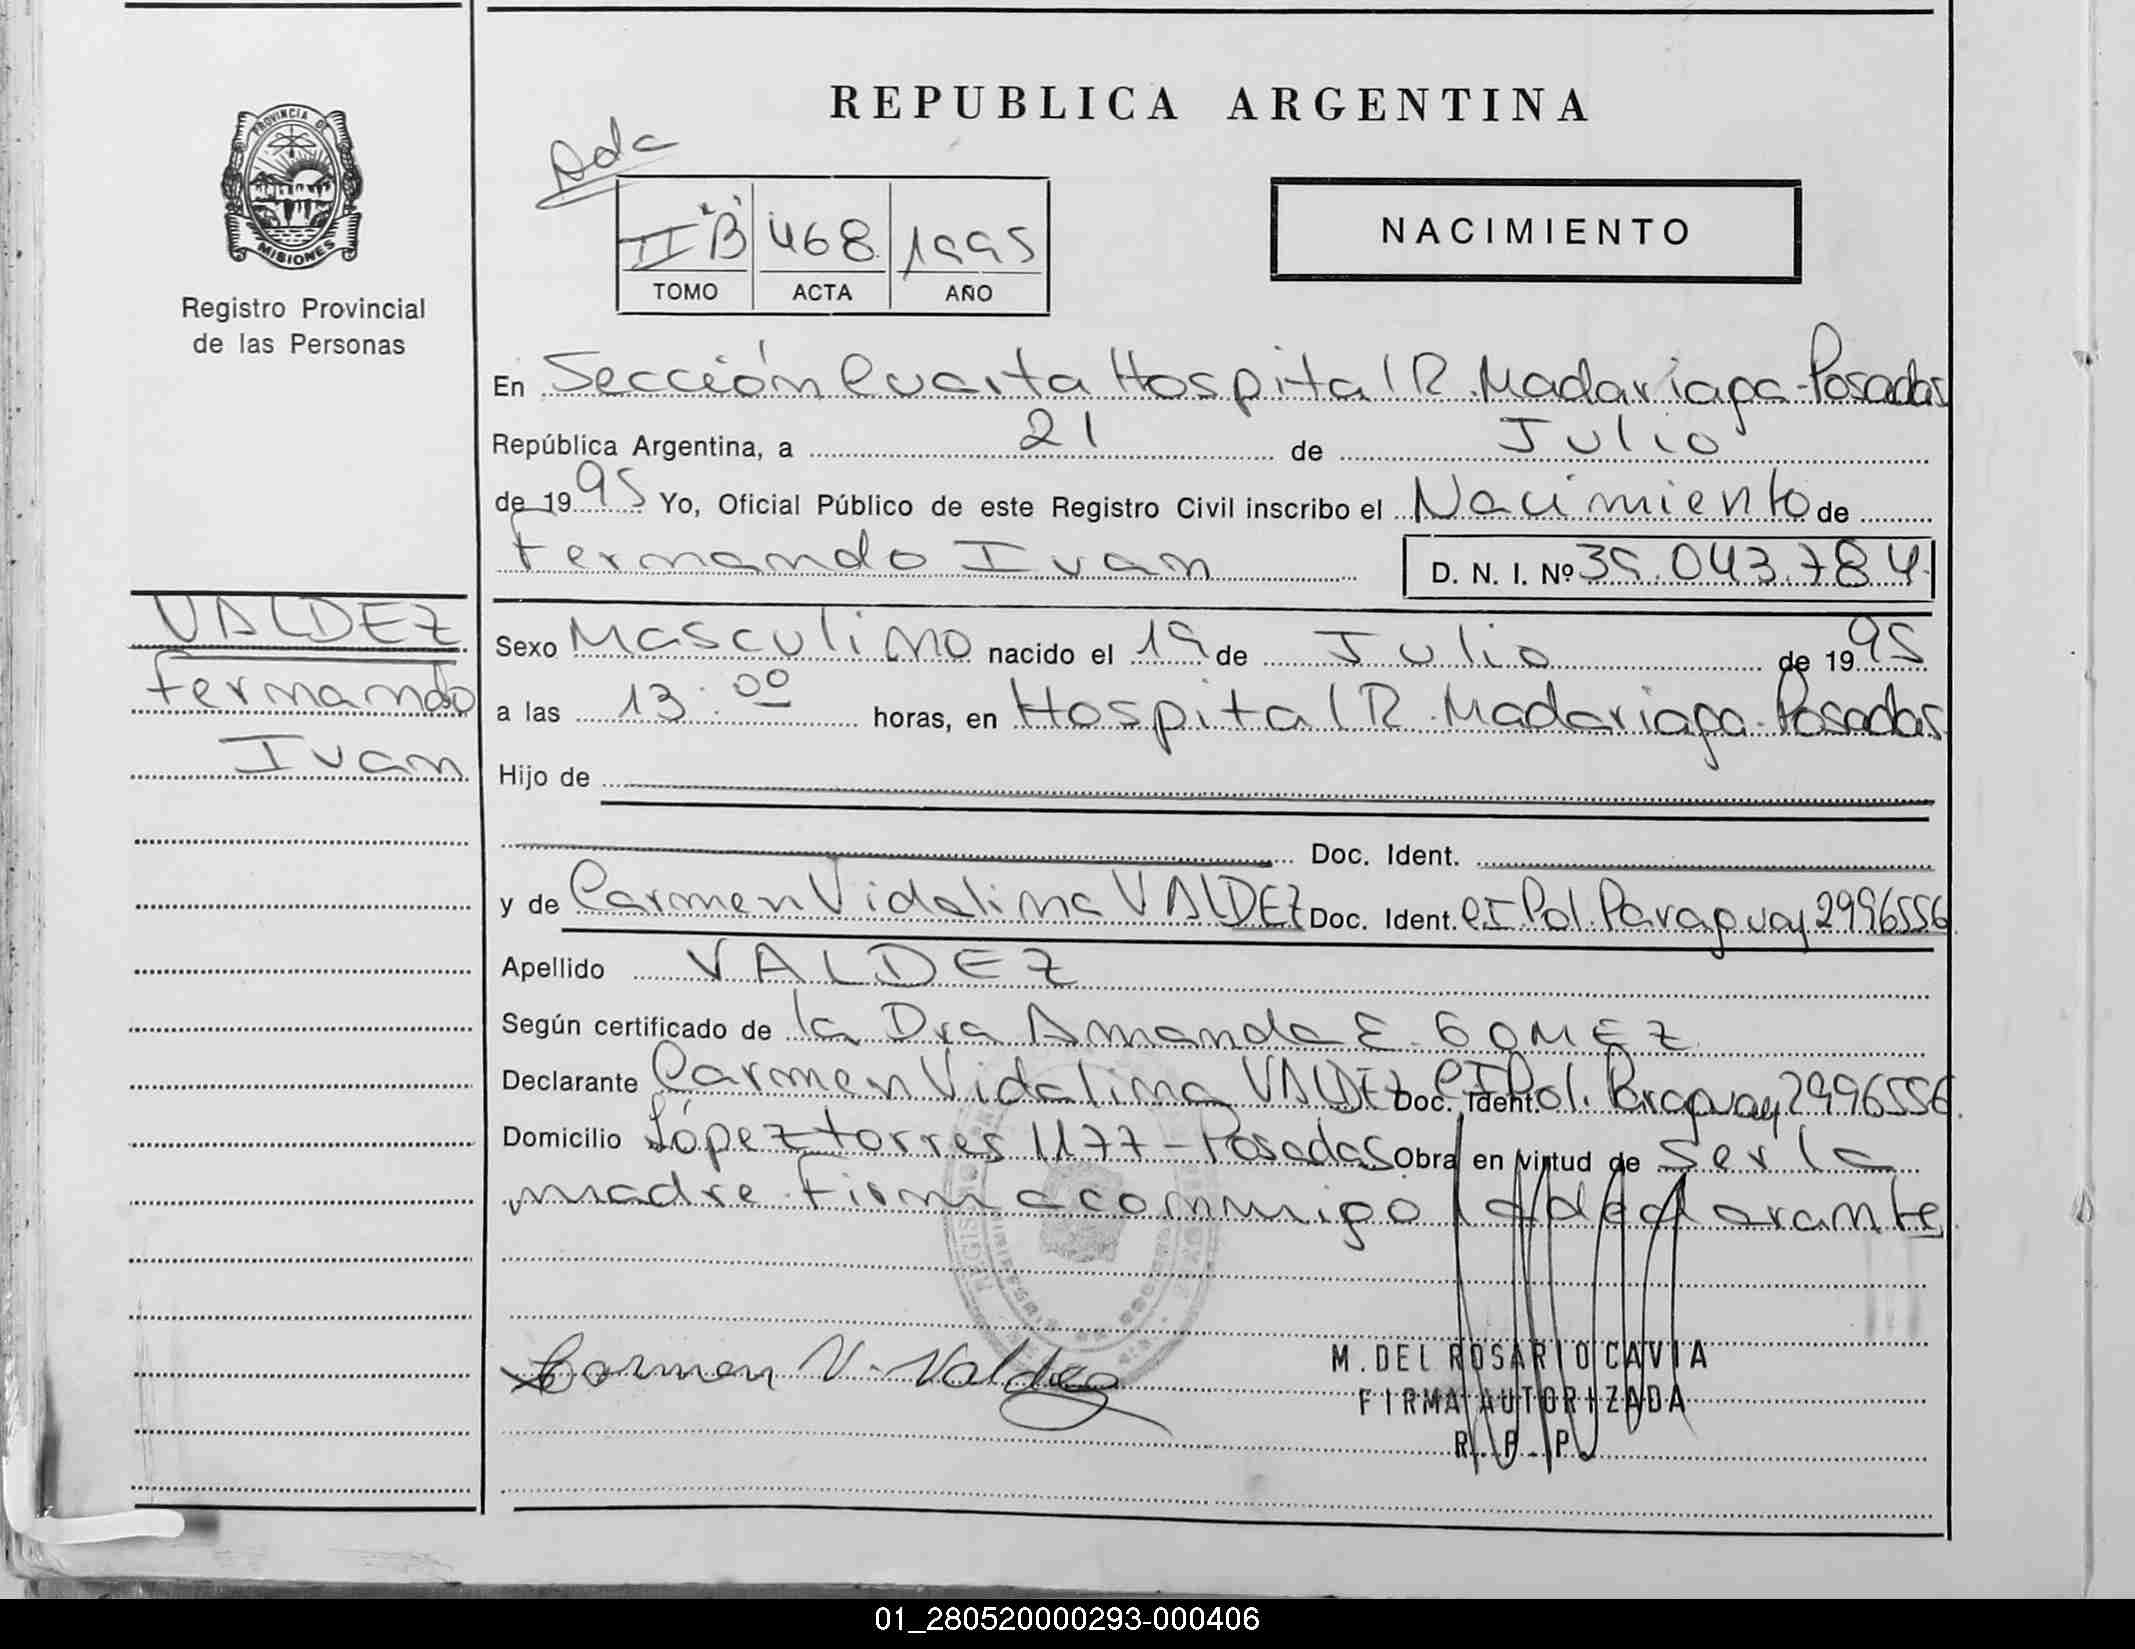 REPUBLICA ARGENTINA
PROVINCIA DE
MISIONES
Registro Provincial
de las Personas
Ada
II "B" 468 1995
TOMO ACTA AÑO
NACIMIENTO
En Sección Cuarta Hospital R. Madariaga - Posadas
República Argentina, a 21 de Julio
de 1995 Yo, Oficial Público de este Registro Civil inscribo el Nacimiento de
Fernando Ivan D. N. I. Nº 39.043.784
VALDEZ
Fernando
Ivan
Sexo Masculino nacido el 19 de Julio de 1995
a las 13:00 horas, en Hospital R. Madariaga - Posadas
Hijo de
Doc. Ident.
y de Carmen Vidalina VALDEZ Doc. Ident. CI Pol. Paraguay 2996556
Apellido VALDEZ
Según certificado de la Dra Amanda E. GOMEZ
Declarante Carmen Vidalina VALDEZ Doc. Ident. CI Pol. Paraguay 2996556
Domicilio López torres 1177 - Posadas Obra en virtud de ser la
madre firma conmigo la declarante
Carmen V. Valdez
M. DEL ROSARIO CAVIA
FIRMA AUTORIZADA
R. P. P.
01_280520000293-000406